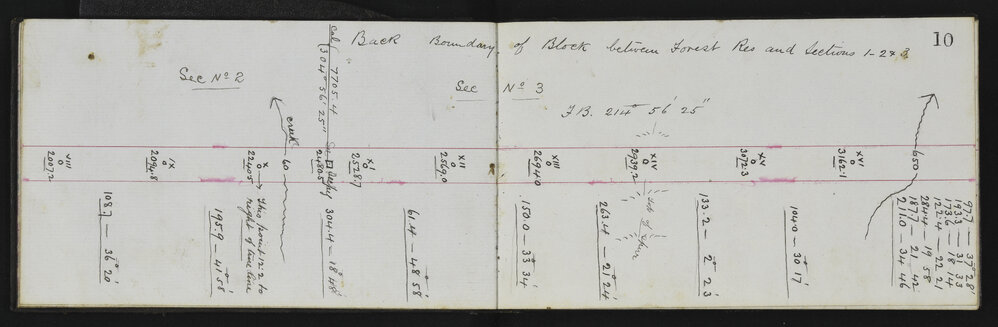 10
Back Boundary of Block between Forest Res and Sections 1-2 & 3
Sec Nº 2
Sec Nº 3
F.B. 214° 56' 25"
cal
7705.4
(304° 56' 25"
creek
60
650
VIII
2007.2
IX
2094.8
X
2240.5 → This point 12.2 to
right of true line
2480.5
XI
2528.7
XII
2569.0
XIII
2694.0
XIV
2939.2
XV
3072.3
XVI
3162.1
108.7 — 36° 20'
195.9 — 41° 58'
304.4 — 18° 48'
61.4 — 48° 58'
150.0 — 33° 34'
263.4 — 21° 24'
Top of Spur
133.2 — 2° 23'
104.0 — 30° 17'
97.7 — 37° 28'
193.3 — 31 33
173.6 — 18 14
172.4 — 22 21
284.4 — 19 58
187.7 — 21 42
211.0 — 34 46